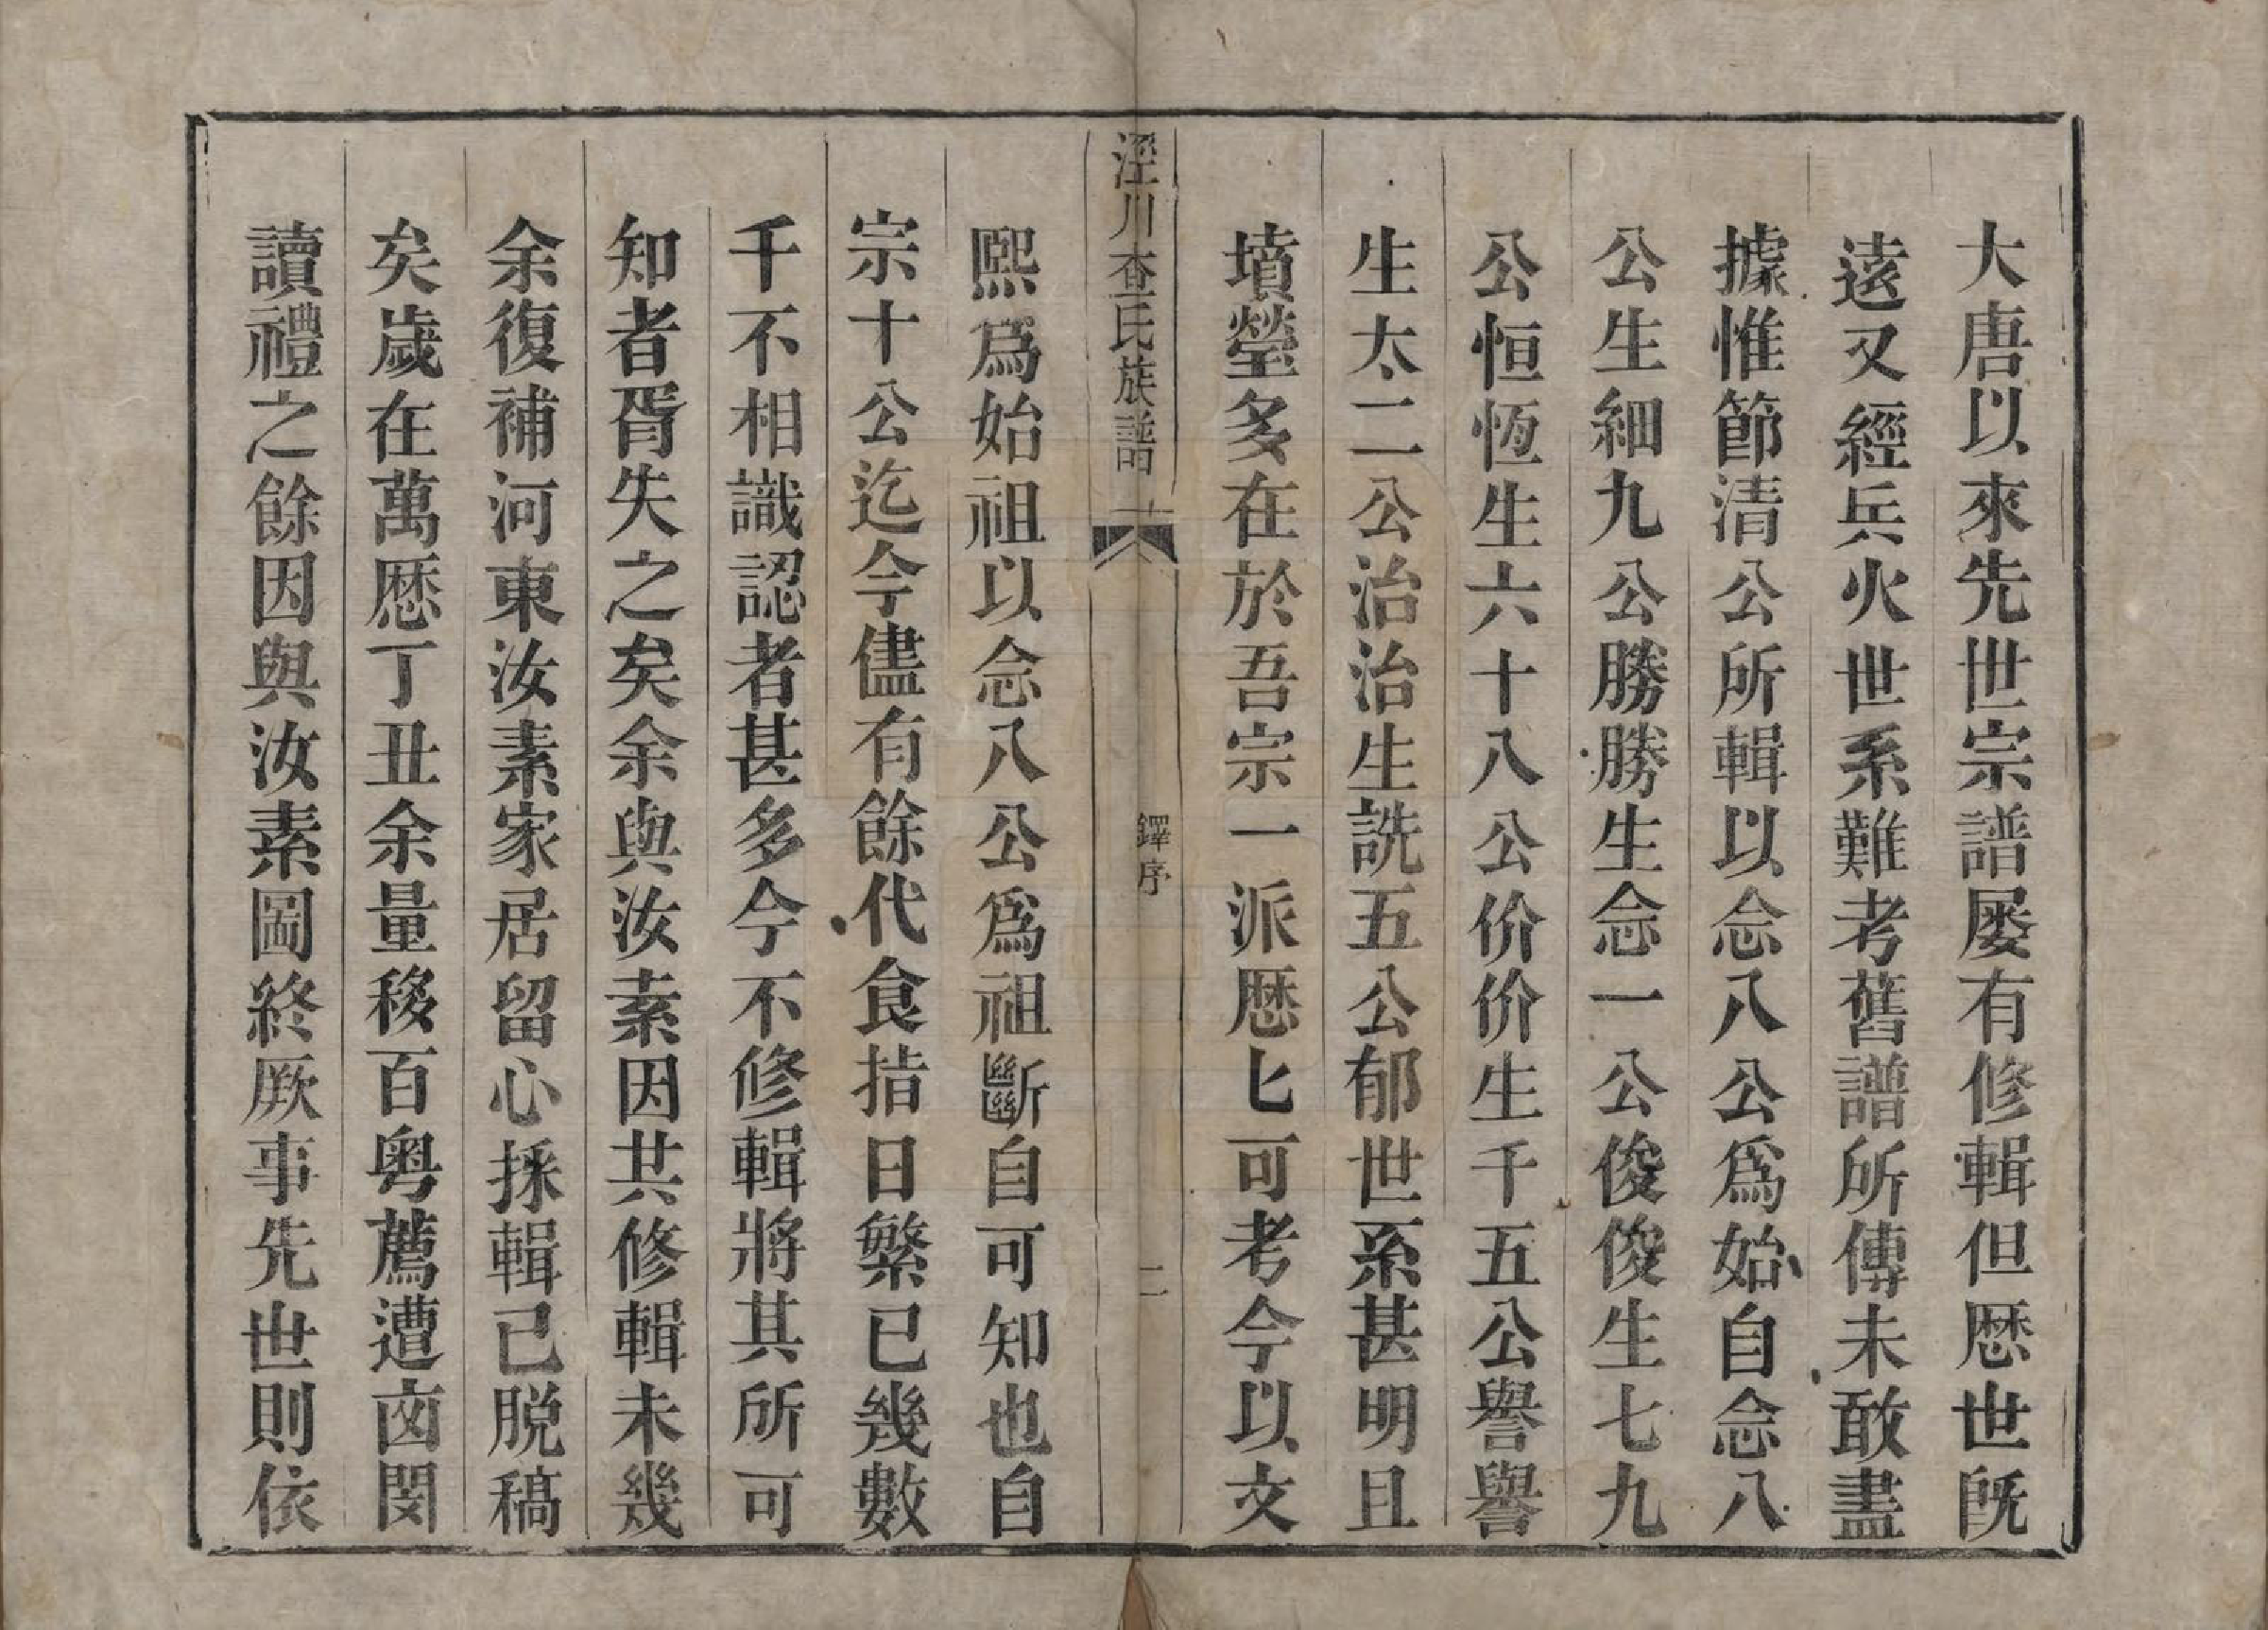 大唐以來先世宗譜屡有修輯但厯世旣
遠又經兵火世系難考舊譜所傳未敢盡
據惟節清公所輯以念八公爲始自念八
公生細九公勝勝生念一公俊俊生七九
公恒恆生六十八公价价生千五公譽譽
生太二公治治生詵五公郁世系甚明且
墳塋多在於吾宗一派厯匕可考今以文
涇川查氏族譜
鐸序
二
熙爲始祖以念八公爲祖斷自可知也自
宗十公迄今儘有餘代食㨗日繁已幾數
千不相識認者甚多今不修輯將其所可
知者胥失之矣余與汝素因共修輯未幾
余復補河東汝素家居留心採輯已脱稿
矣歲在萬厯丁丑余量移百粤薦遭㐫閔
讀禮之餘因與汝素圖終厥事先世則依